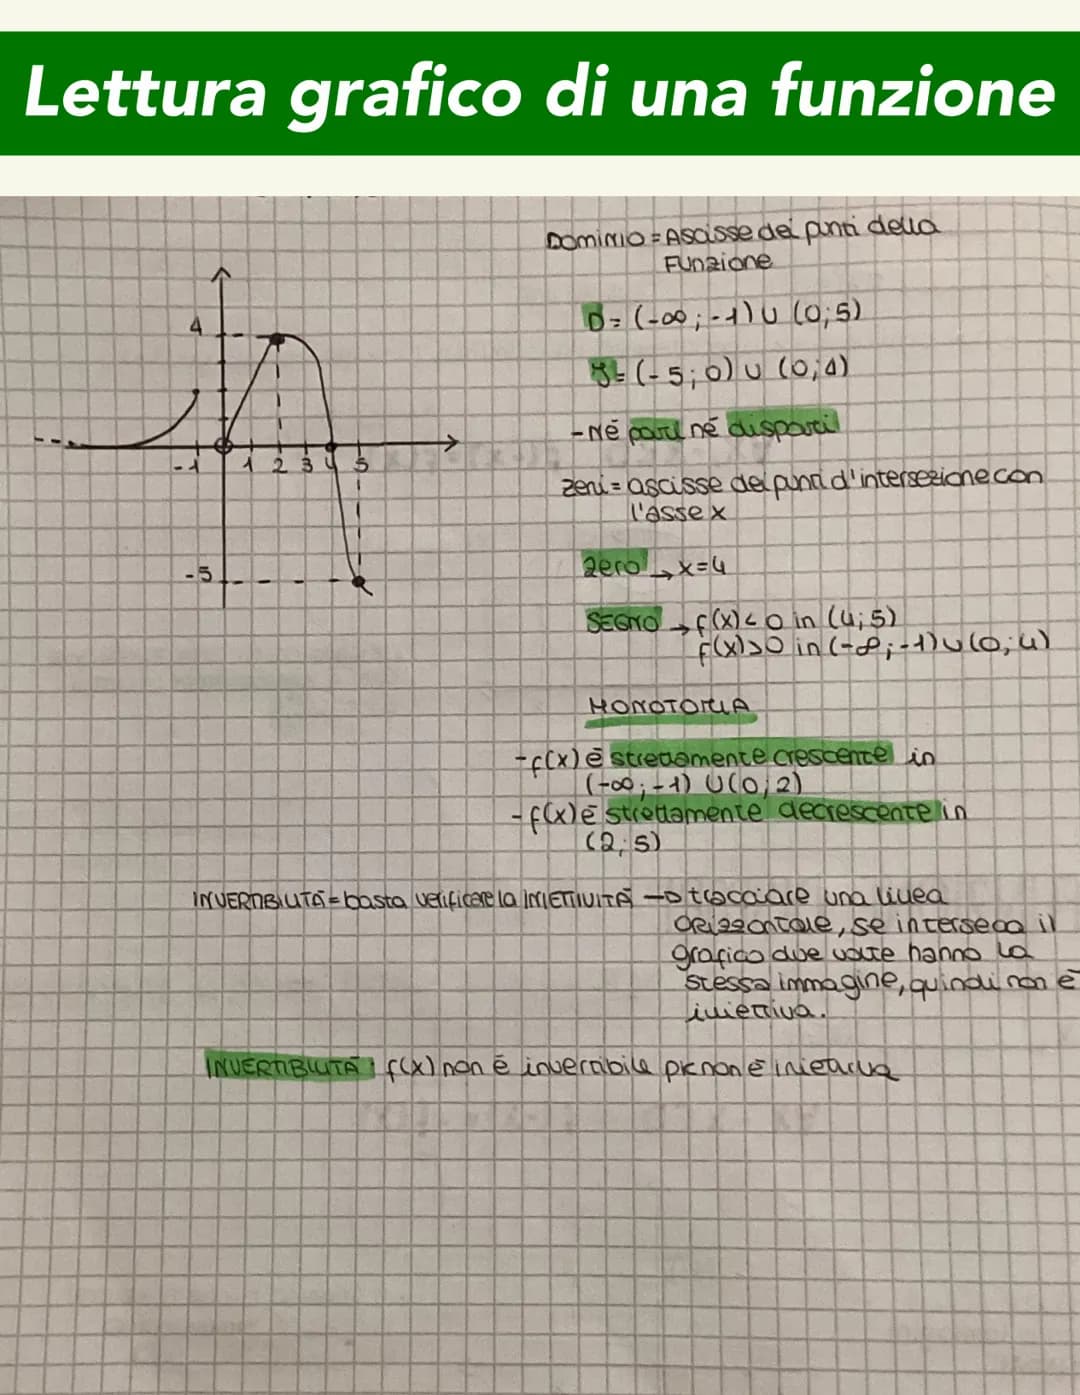 Lettura grafico di una funzione
Dominio = Ascisse dei punti della
Funzione
D = (-∞ ; -1) ∪ (0;5)
= (-5;0) ∪ (0;4)
- Né pari né dispari
zeri = ascisse dei punti d'intersezione con
l'asse x
zero → x=4
SEGNO → f(x)<0 in (4;5)
f(x)>0 in (-∞;-1) ∪ (0;4)
MONOTONIA
- f(x) è strettamente crescente in
(-∞;-1) ∪ (0;2)
- f(x) è strettamente decrescente in
(2;5)
INVERTIBILITÀ = basta verificare la INIETTIVITÀ → tracciare una linea
orizzontale, se interseca il
grafico due volte hanno la
stessa immagine, quindi non è
iniettiva.
INVERTIBILITÀ : f(x) non è invertibile pk non è iniettiva
4
-1 1 2 3 4 5
-5